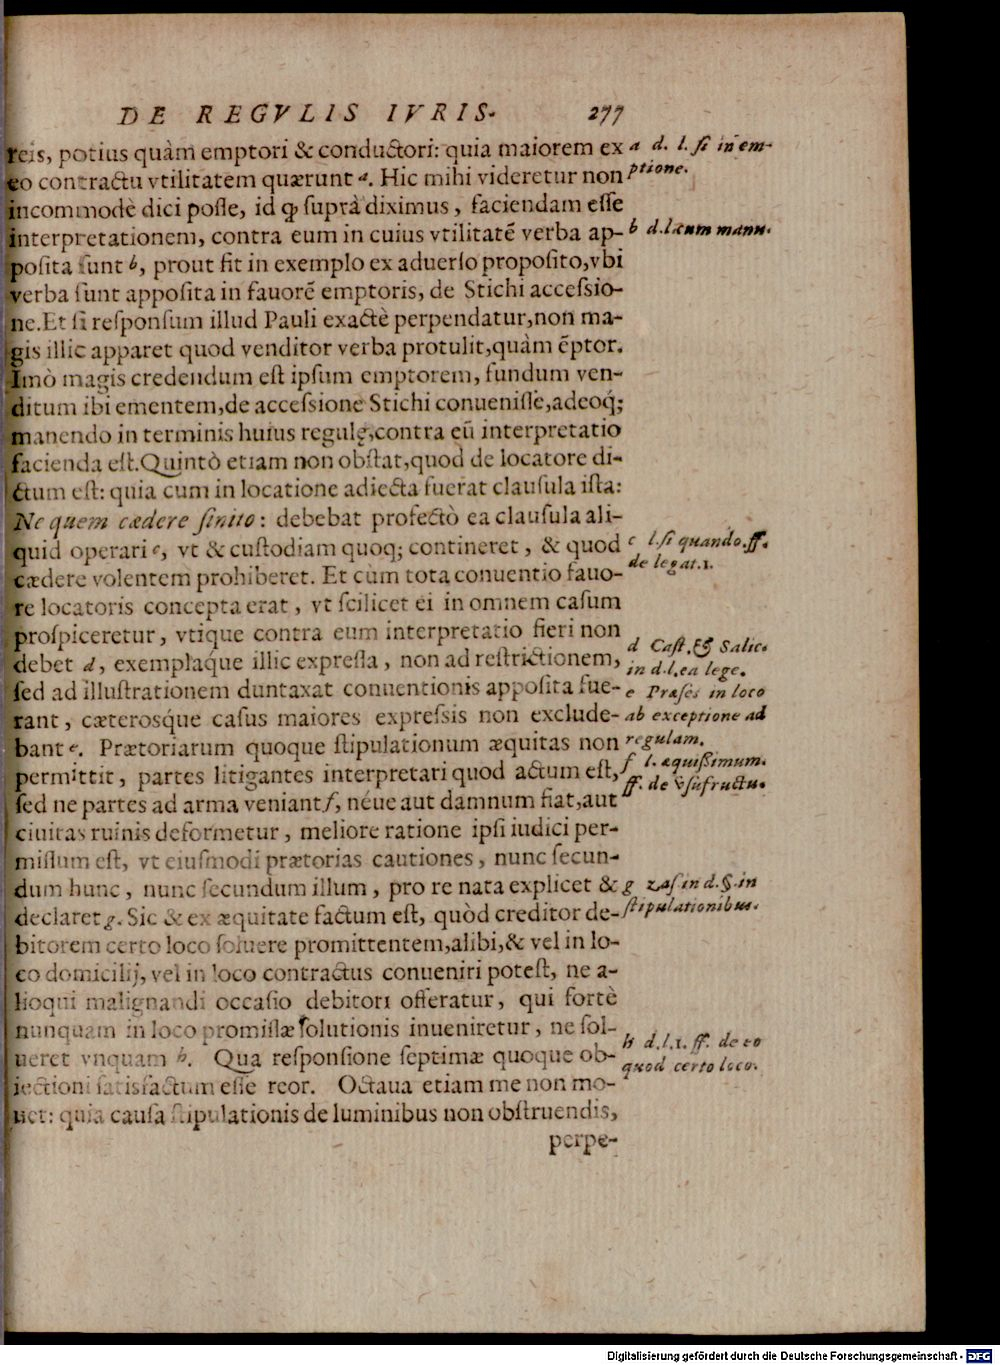 DE REGVLIS IVRIS. 277
reis, potius quàm emptori & conductori: quia maiorem ex
eo contractu vtilitatem quærunt a. Hic mihi videretur non
incommodè dici poſſe, id ꝙ ſuprà diximus, faciendam eſſe
interpretationem, contra eum in cuius vtilitatē verba ap-
poſita ſunt b, prout fit in exemplo ex aduerſo propoſito, vbi
verba ſunt appoſita in fauorē emptoris, de Stichi acceſsio-
ne. Et ſi reſponſum illud Pauli exactè perpendatur, non ma-
gis illic apparet quod venditor verba protulit, quàm ēptor.
Imò magis credendum eſt ipſum emptorem, fundum ven-
ditum ibi ementem, de acceſsione Stichi conueniſſe, adeoq;
manendo in terminis huius regulę, contra eū interpretatio
facienda eſt. Quintò etiam non obſtat, quod de locatore di-
ctum eſt: quia cum in locatione adiecta fuerat clauſula iſta:
Ne quem cædere ſinito: debebat profectò ea clauſula ali-
quid operari c, vt & cuſtodiam quoq; contineret, & quod
cædere volentem prohiberet. Et cùm tota conuentio fauo-
re locatoris concepta erat, vt ſcilicet ei in omnem caſum
proſpiceretur, vtique contra eum interpretatio fieri non
debet d, exemplaq́ue illic expreſſa, non ad reſtrictionem,
ſed ad illuſtrationem duntaxat conuentionis appoſita fue-
rant, cæterosq́ue caſus maiores expreſsis non exclude-
bant e. Prætoriarum quoque ſtipulationum æquitas non
permittit, partes litigantes interpretari quod actum eſt,
ſed ne partes ad arma veniant f, néue aut damnum fiat, aut
ciuitas ruinis deformetur, meliore ratione ipſi iudici per-
miſſum eſt, vt eiuſmodi prætorias cautiones, nunc ſecun-
dum hunc, nunc ſecundum illum, pro re nata explicet &
declaret g. Sic & ex æquitate factum eſt, quòd creditor de-
bitorem certo loco ſoluere promittentem, alibi, & vel in lo-
co domicilij, vel in loco contractus conueniri poteſt, ne a-
lioqui malignandi occaſio debitori offeratur, qui fortè
nunquam in loco promiſſæ ſolutionis inueniretur, ne ſol-
ueret vnquam h. Qua reſponſione ſeptimæ quoque ob-
iectioni ſatisfactum eſſe reor. Octaua etiam me non mo-
uet: quia cauſa ſtipulationis de luminibus non obſtruendis,
perpe-
a d. l. ſi in em-
ptione.
b d. l. cum manu.
c l. ſi quando. ff.
de legat. 1.
d Caſt. & Salic.
in d. l. ea lege.
e Præſes in loco
ab exceptione ad
regulam.
f l. æquißimum.
ff. de vſufructu.
g zaſ in d. §. in
ſtipulationibus.
h d. l. 1. ff. de eo
quod certo loco.
Digitalisierung gefördert durch die Deutsche Forschungsgemeinschaft - DFG